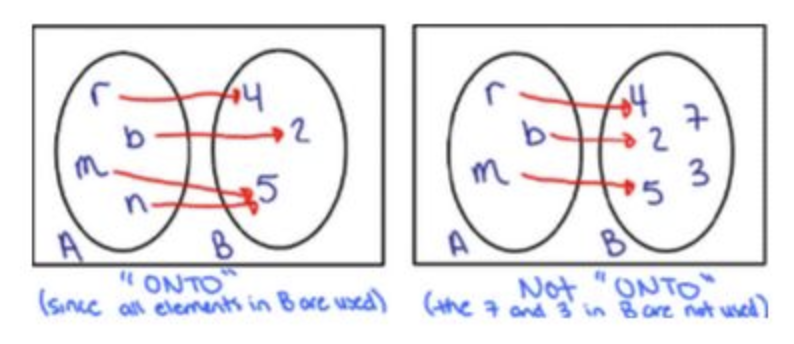 r
b
m
n
A
4
2
5
B
"ONTO"
(since all elements in B are used)
r
b
m
A
4
7
2
3
5
B
Not "ONTO"
(the 7 and 3 in B are not used)